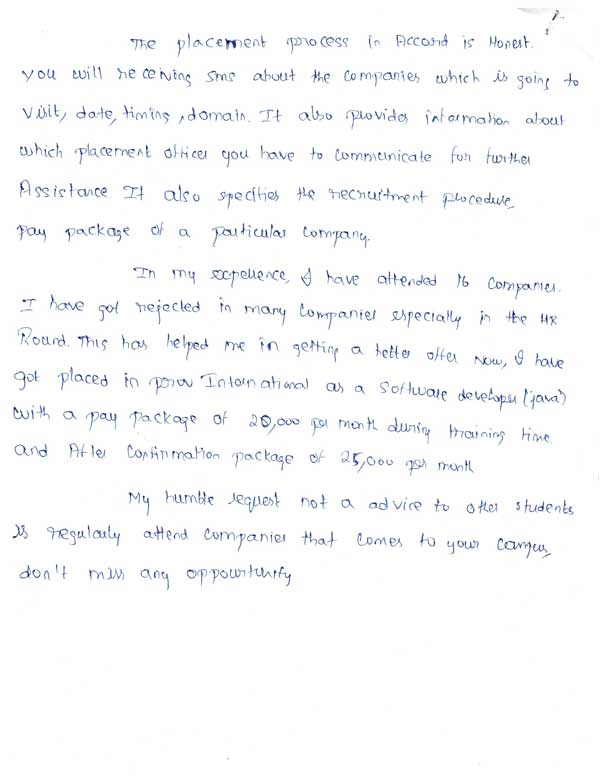 The placement process in Accord is Honest.
you will receiving sms about the companies which is going to
visit, date, timing, domain. It also provides information about
which placement officer you have to communicate for further
Assistance. It also specifies the recruitment procedure,
pay package of a particular company.
In my experience, I have attended 16 companies.
I have got rejected in many companies especially in the HR
Round. This has helped me in getting a better offer Now, I have
got placed in International as a software developer (java)
with a pay package of 20,000 per month during training time
and After confirmation package of 25,000 per month
My humble request not a advice to other students
is regularly attend companies that comes to your campus,
don't miss any oppourtunity